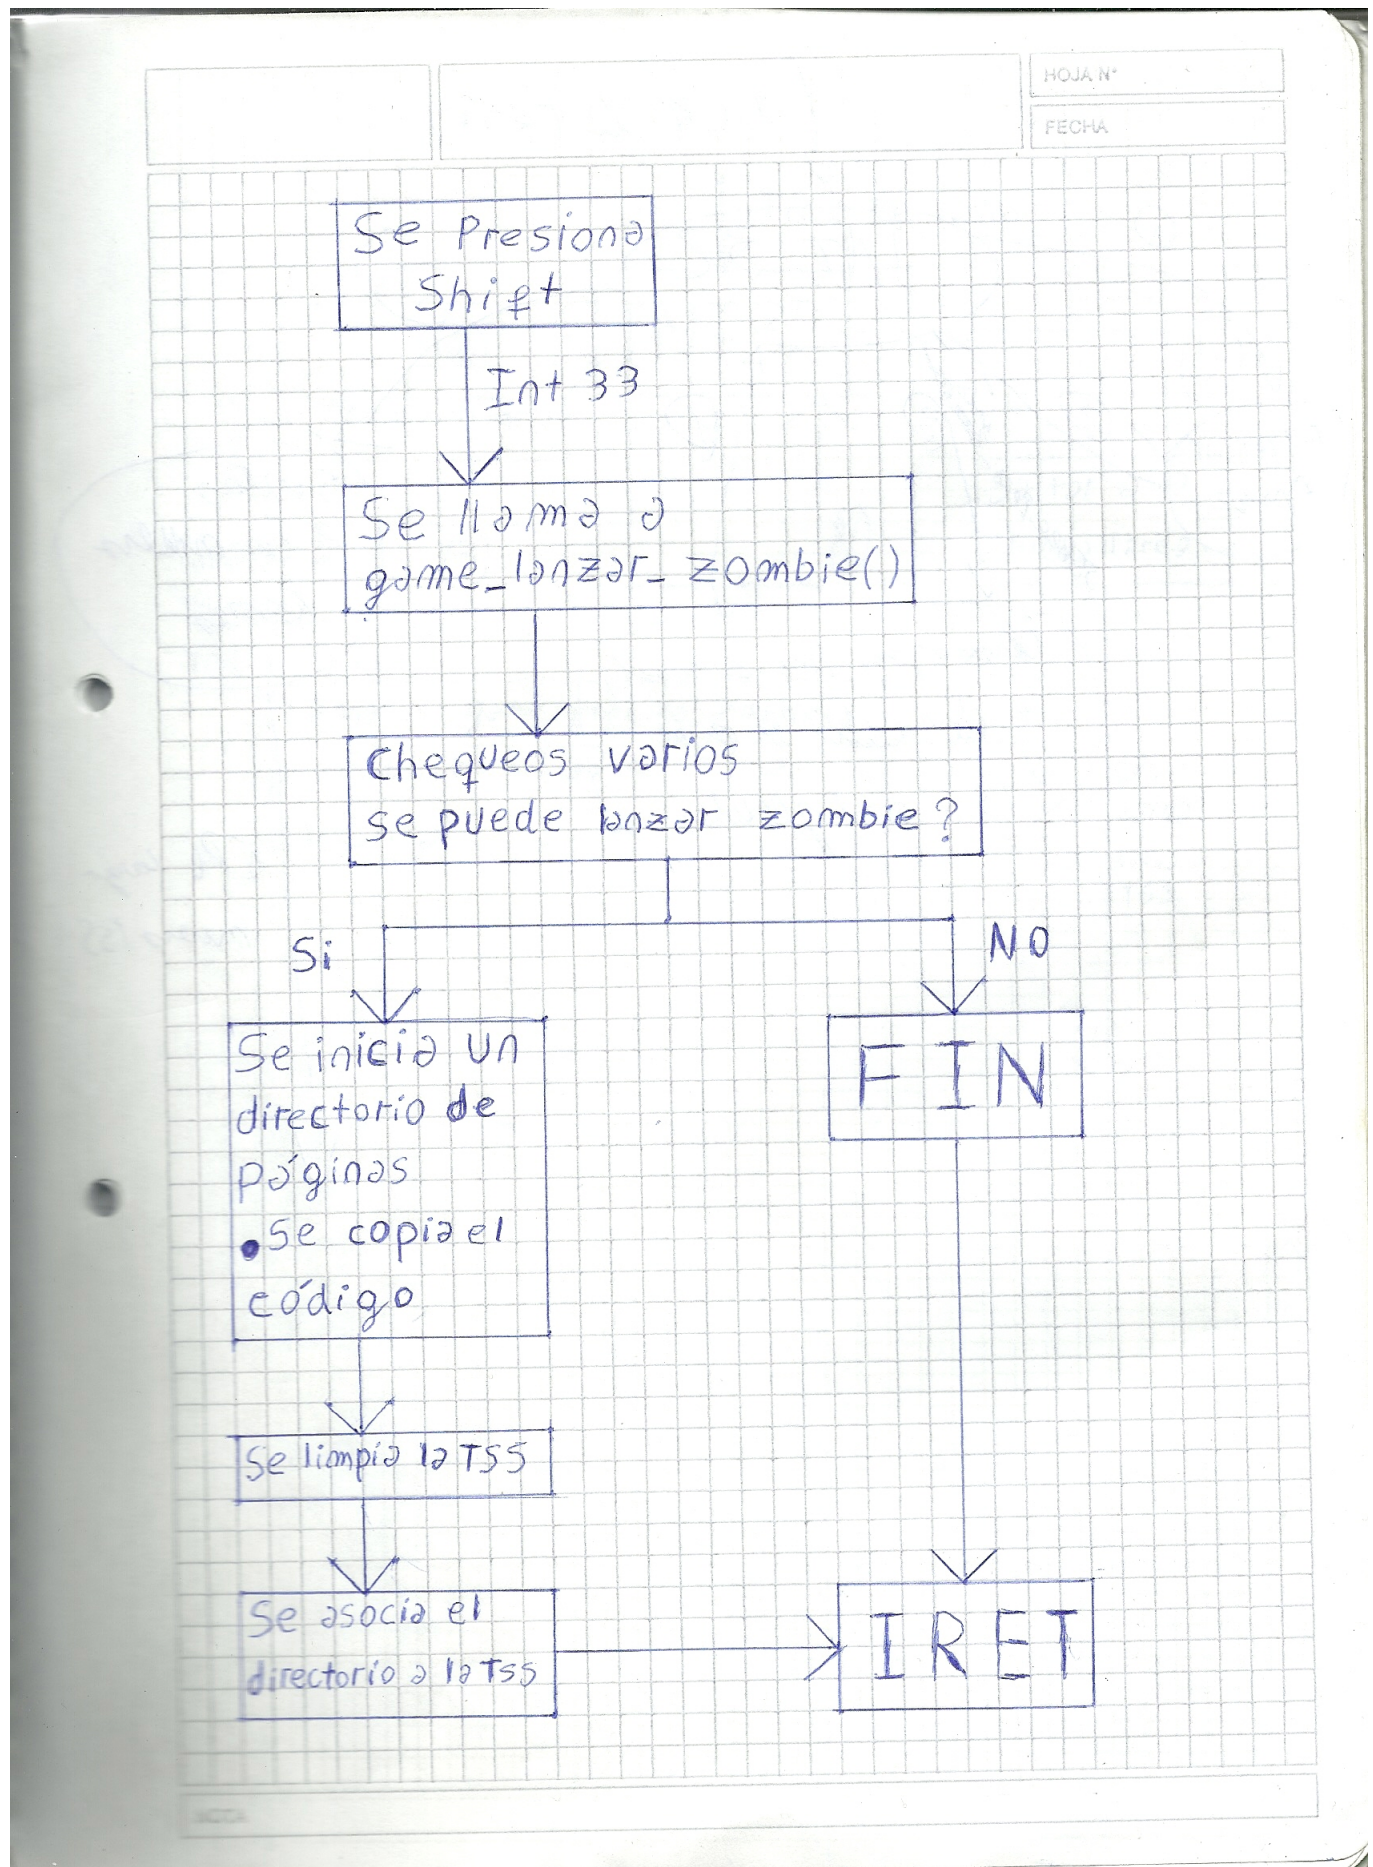 HOJA N°
FECHA
Se Presiona
Shift
Int 33
Se llama a
game_lanzar_zombie()
Chequeos varios
se puede lanzar zombie?
Si
NO
Se inicia un
directorio de
páginas
• Se copia el
código
FIN
Se limpia la TSS
Se asocia el
directorio a la TSS
IRET
NOTA